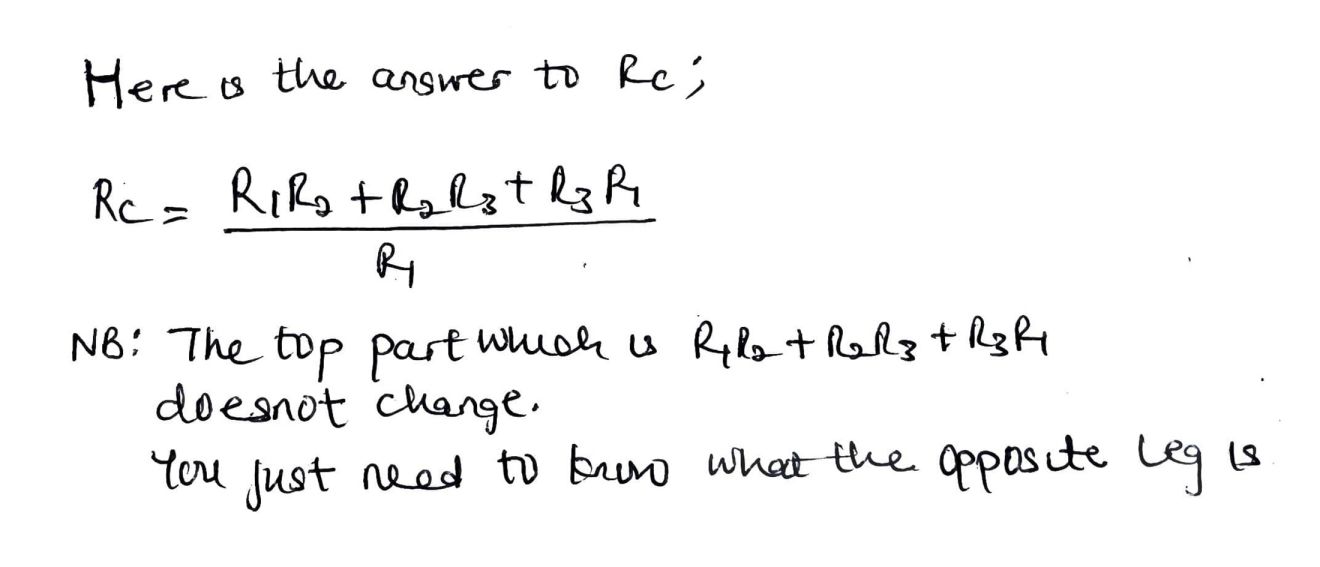 Here is the answer to Rc;
Rc = R1R2 + R2R3 + R3R1
R1
NB: The top part which is R1R2 + R2R3 + R3R1
doesnot change.
You just need to know what the opposite leg is